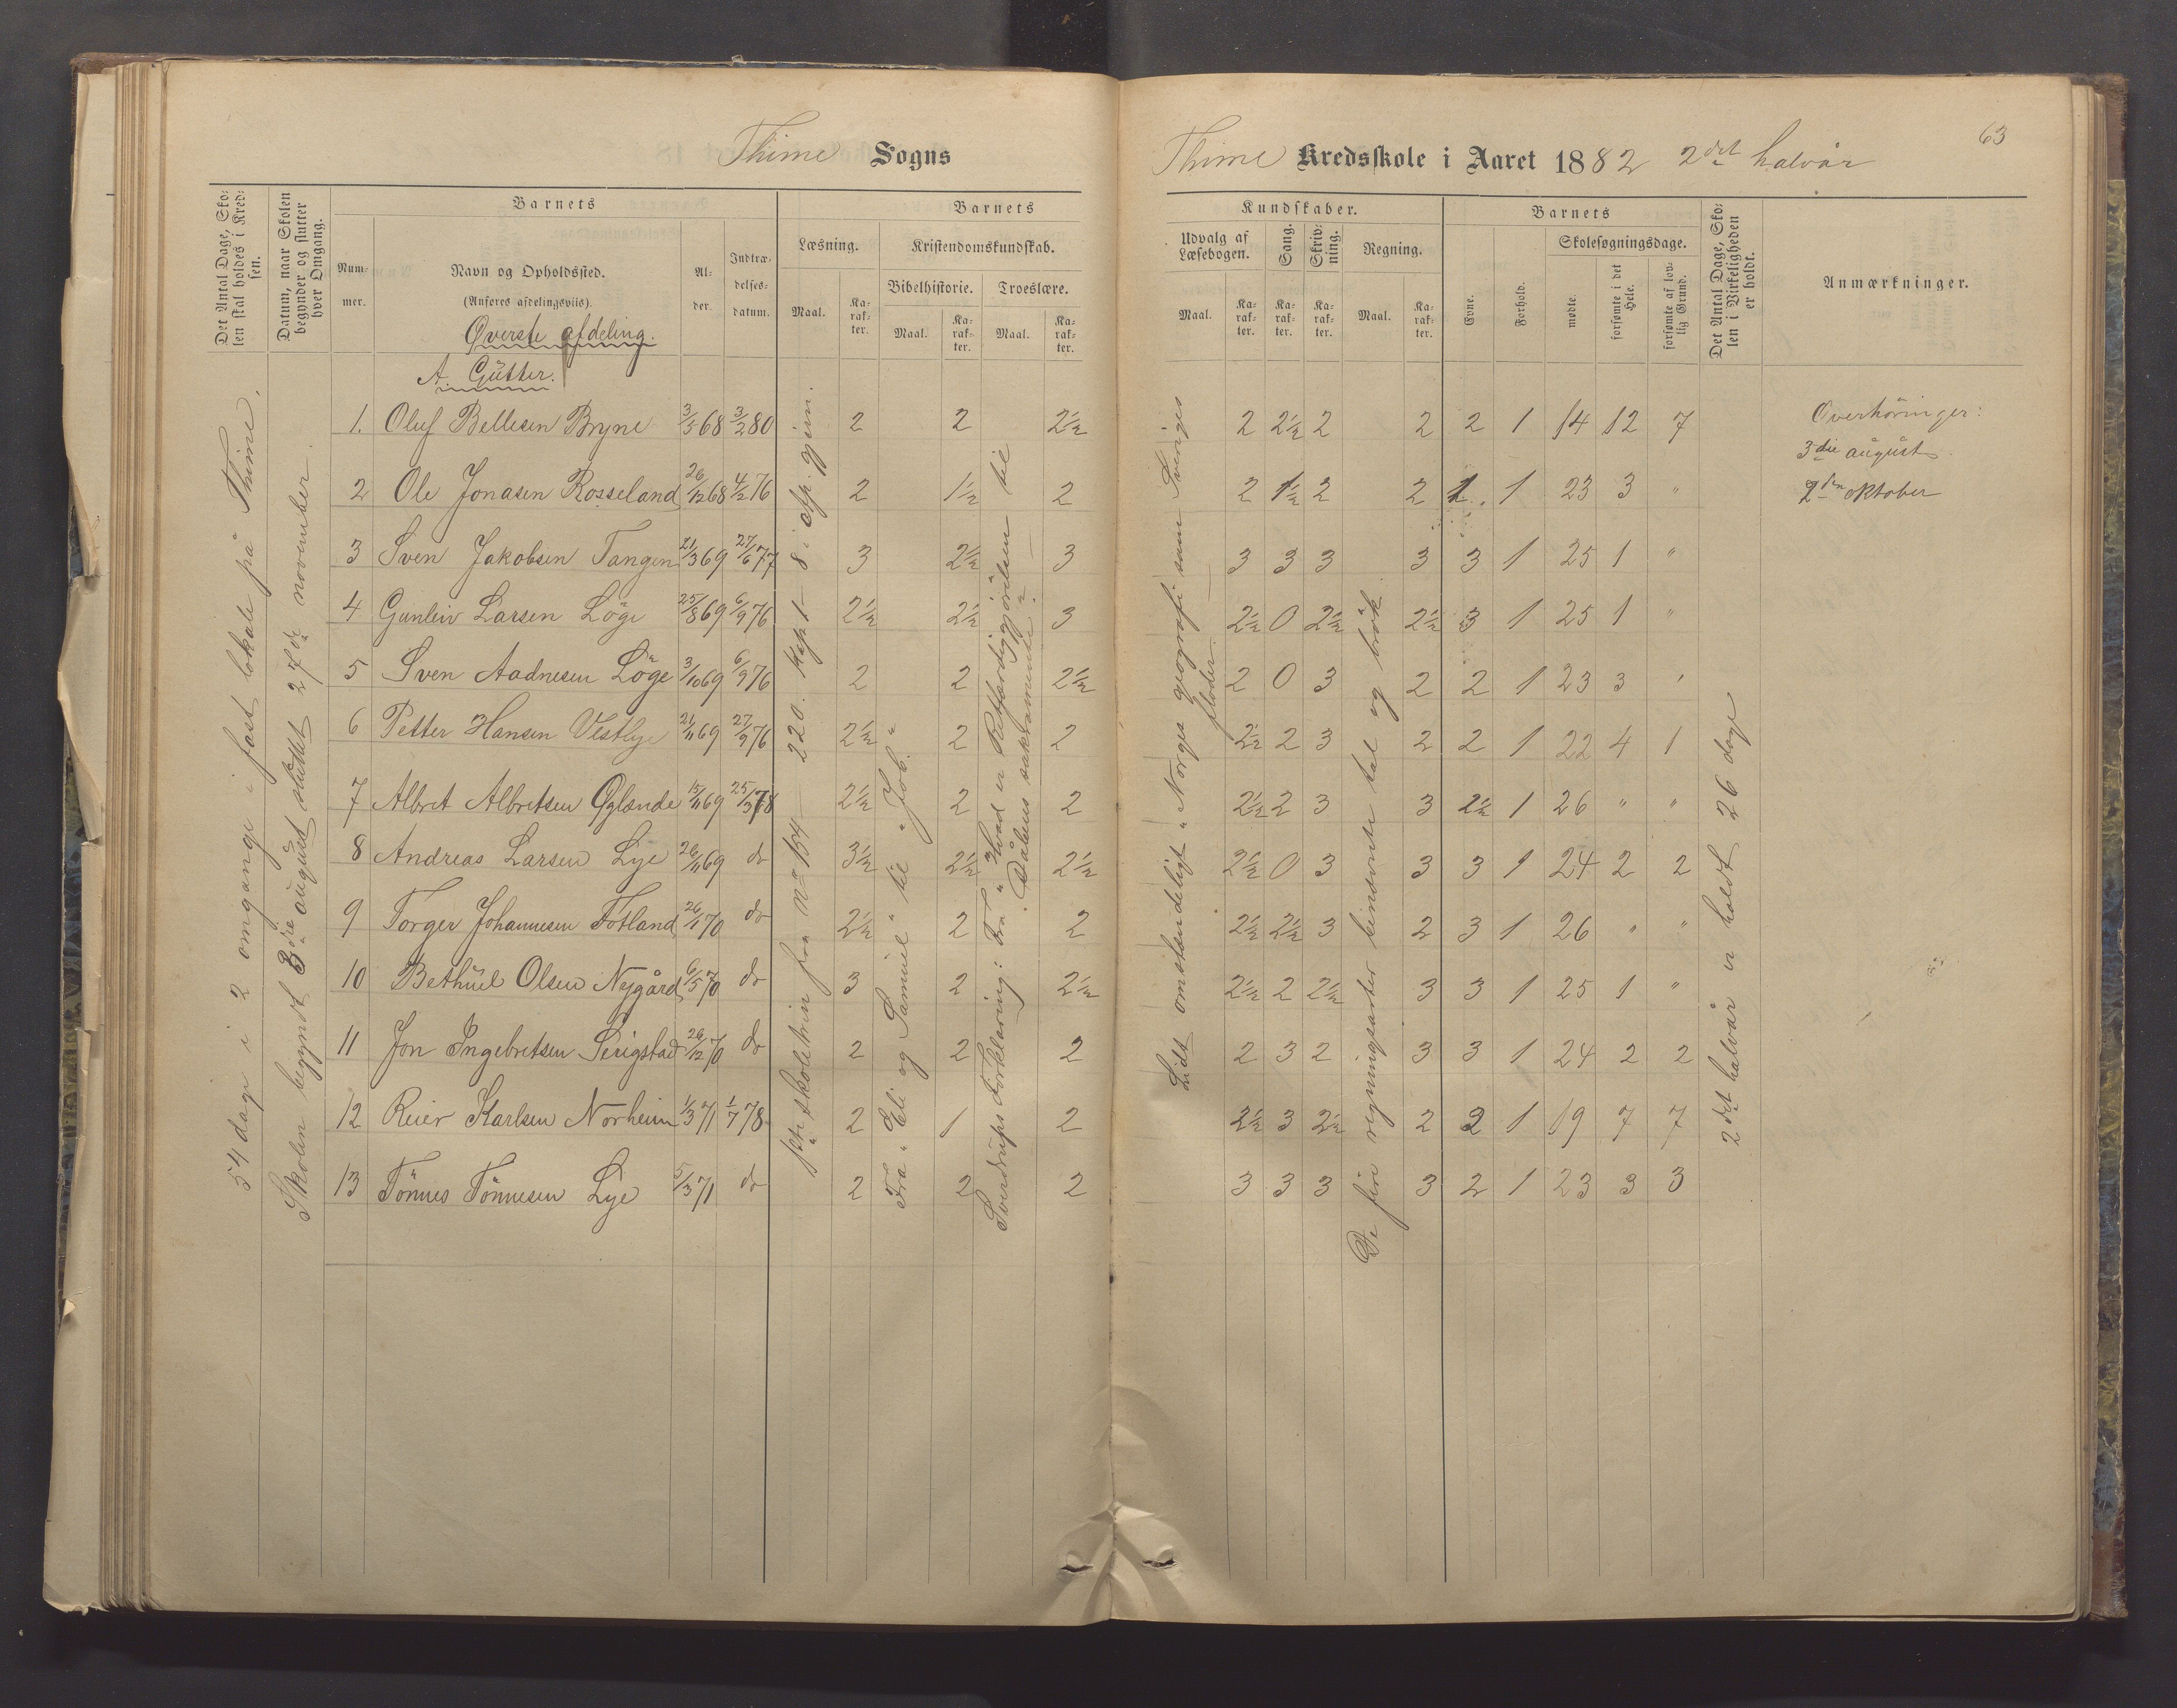 Thime Sogns
Det Antal Dage, Sko-
len skal holdes i Kred-
sen.
Datum, naar Skolen
begynder og slutter
hver Omgang.
Barnets
Num-
mer.
Navn og Opholdssted.
(Anføres afdelingsviis).
Al-
der.
Indtræ-
delses-
datum.
Barnets
Læsning.
Maal.
Ka-
rak-
ter.
Kristendomskundskab.
Bibelhistorie.
Maal.
Ka-
rak-
ter.
Troeslære.
Maal.
Ka-
rak-
ter.
Øverste afdeling.
A. Gütter.
1. Oluf Bellesen Bryne 3/5 68 3/2 80 2 2 2½
2 Ole Jonasen Rosseland 26/12 68 4/2 76 2 1½ 2
3 Sven Jakobsen Tangen 21/3 69 27/6 77 3 2½ 3
4 Gunleiv Larsen Löge 25/8 69 6/9 76 2½ 2½ 3
5 Sven Aadnesen Löge 3/10 69 6/9 76 2 2 2½
6 Petter Hansen Vestlye 21/11 69 27/9 76 2½ 2 2
7 Albret Albretsen Øglænde 15/11 69 25/3 78 2½ 2 2
8 Andreas Larsen Lye 26/11 69 do 3½ 2½ 2½
9 Torger Johannesen Fotland 26/1 70 do 2½ 2 2
10 Bethüel Olsen Nygård 6/5 70 do 3 2 2½
11 Jon Ingebretsen Serigstad 26/12 70 do 2 2 2
12 Reier Karlsen Norheim 1/3 71 1/7 78 2 1 2
13 Tönnes Tönnesen Lye 5/3 71 do 2 2 2
54 dage i 2 omgange i fast lokale på Thime.
Skolen begyndt 3die august sluttet 27de november.
1ste skoletrin fra No 154 - 220. Kap 1 - 8 i afp. gjern.
Fra "Eli og Samuel" til "Job."
Sverdrups Forklaring: Fra "Hvad er Retfærdiggjörelsen" til
"Dåbens sakramente".
Thime Kredsskole i Aaret 1882 2det halvår
63
Kundskaber.
Udvalg af
Læsebogen.
Maal.
Ka-
rak-
ter.
Sang.
Ka-
rak-
ter.
Skriv-
ning.
Ka-
rak-
ter.
Regning.
Maal.
Ka-
rak-
ter.
Barnets
Evne.
Forhold.
Skolesøgningsdage.
mødte.
forsømte i det
Hele.
forsømte af lov-
lig Grund.
Det Antal Dage, Sko-
len i Virkeligheden
er holdt.
Anmærkninger.
2 2½ 2 2 2 1 14 12 7
2 1½ 2 2 1. 1 23 3 "
3 3 3 3 3 1 25 1 "
2½ 0 2½ 2½ 3 1 25 1 "
2 0 3 2 2 1 23 3 '
2½ 2 3 2 2 1 22 4 1
2½ 2 3 3 2½ 1 26 " "
2½ 0 3 3 3 1 24 2 2
2½ 2½ 3 2 3 1 26 " "
2½ 2 2½ 3 3 1 25 1 "
2 3 2 3 3 1 24 2 2
2½ 3 2½ 2 2 1 19 7 7
3 3 3 3 2 1 23 3 3
Lidt omstændeligt "Norges geografi samt Sveriges
floder
De fire regningsarter benævnte tal og brök.
2det halvår er holdt 26 dage
Overhöringer:
3die august
2den oktober